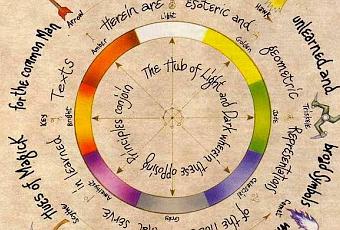 The Hub of Light and Dark wherein these opposing
Principles conjoin
Light
Golden
Jade
Celestial
Grey
Amethyst
Bright
Amber
Herein are
esoteric and
geometric
Representations
of the
serve
in learned
Texts
for the common Man
unlearned and
broad symbols
of Magick
Arrow
Hawk
Triskele
Comet
Scythe
Key